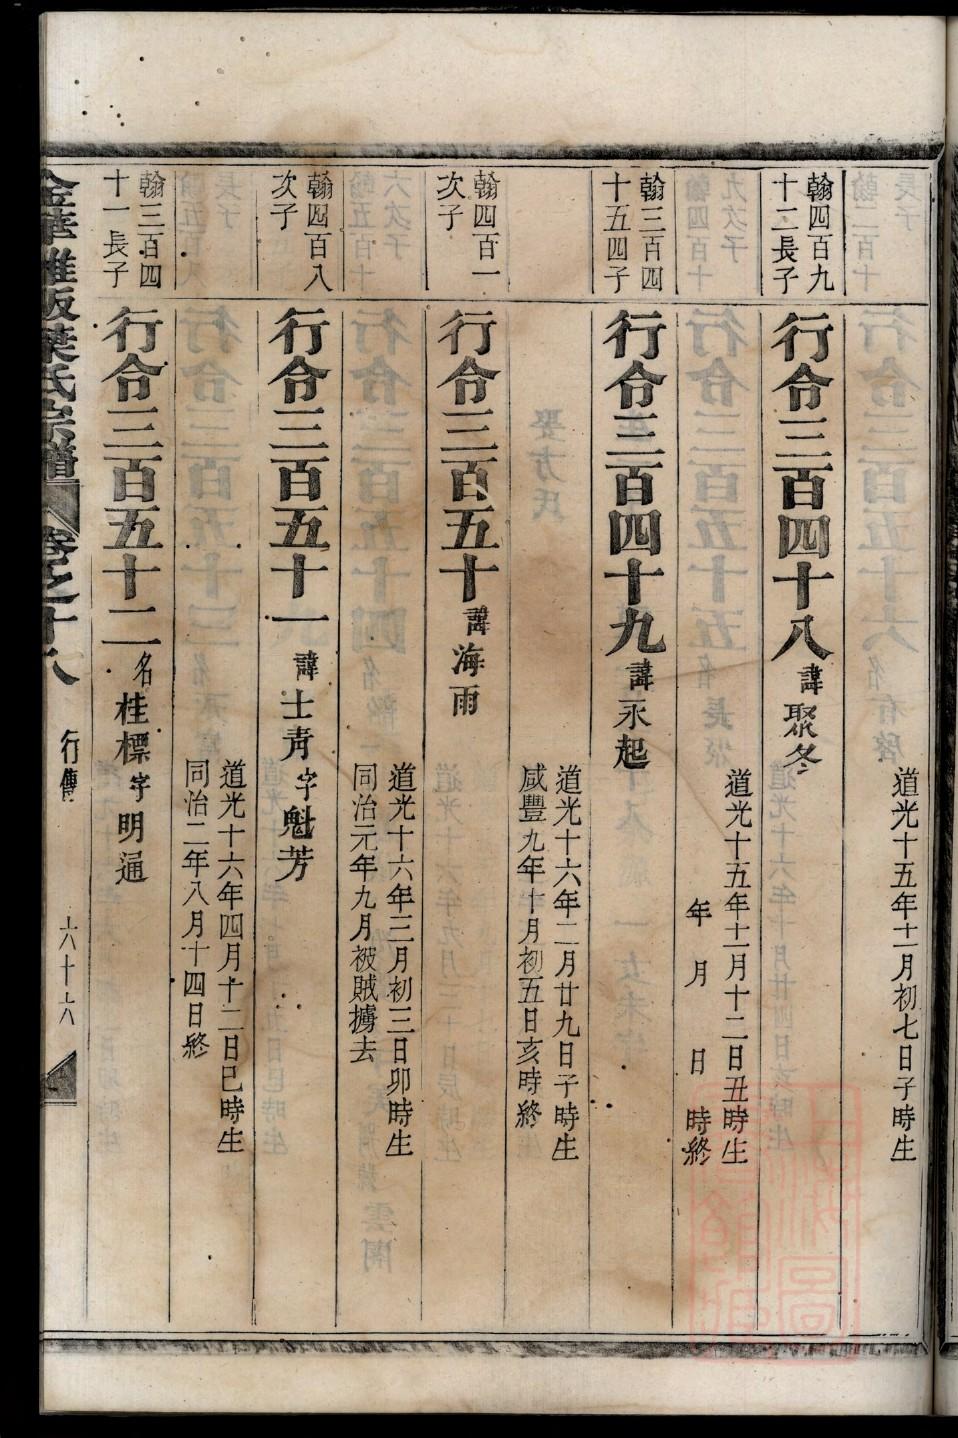 道光十五年十一月初七日子時生
翰四百九
十二長子
行令三百四十八 諱聚冬
道光十五年十一月十二日丑時生
年 月 日 時終
翰三百四
十五四子
行令三百四十九 諱永起
道光十六年二月廿九日子時生
咸豐九年十月初五日亥時終
翰四百一
次子
行令三百五十 諱海雨
道光十六年三月初三日卯時生
同治元年九月被賊擄去
翰四百八
次子
行令三百五十一 諱士青字魁芳
道光十六年四月十二日巳時生
同治二年八月十四日終
翰三百四
十一長子
行令三百五十二 名桂標字明通
金華 葉氏宗譜 卷之十八 行傳 六十六